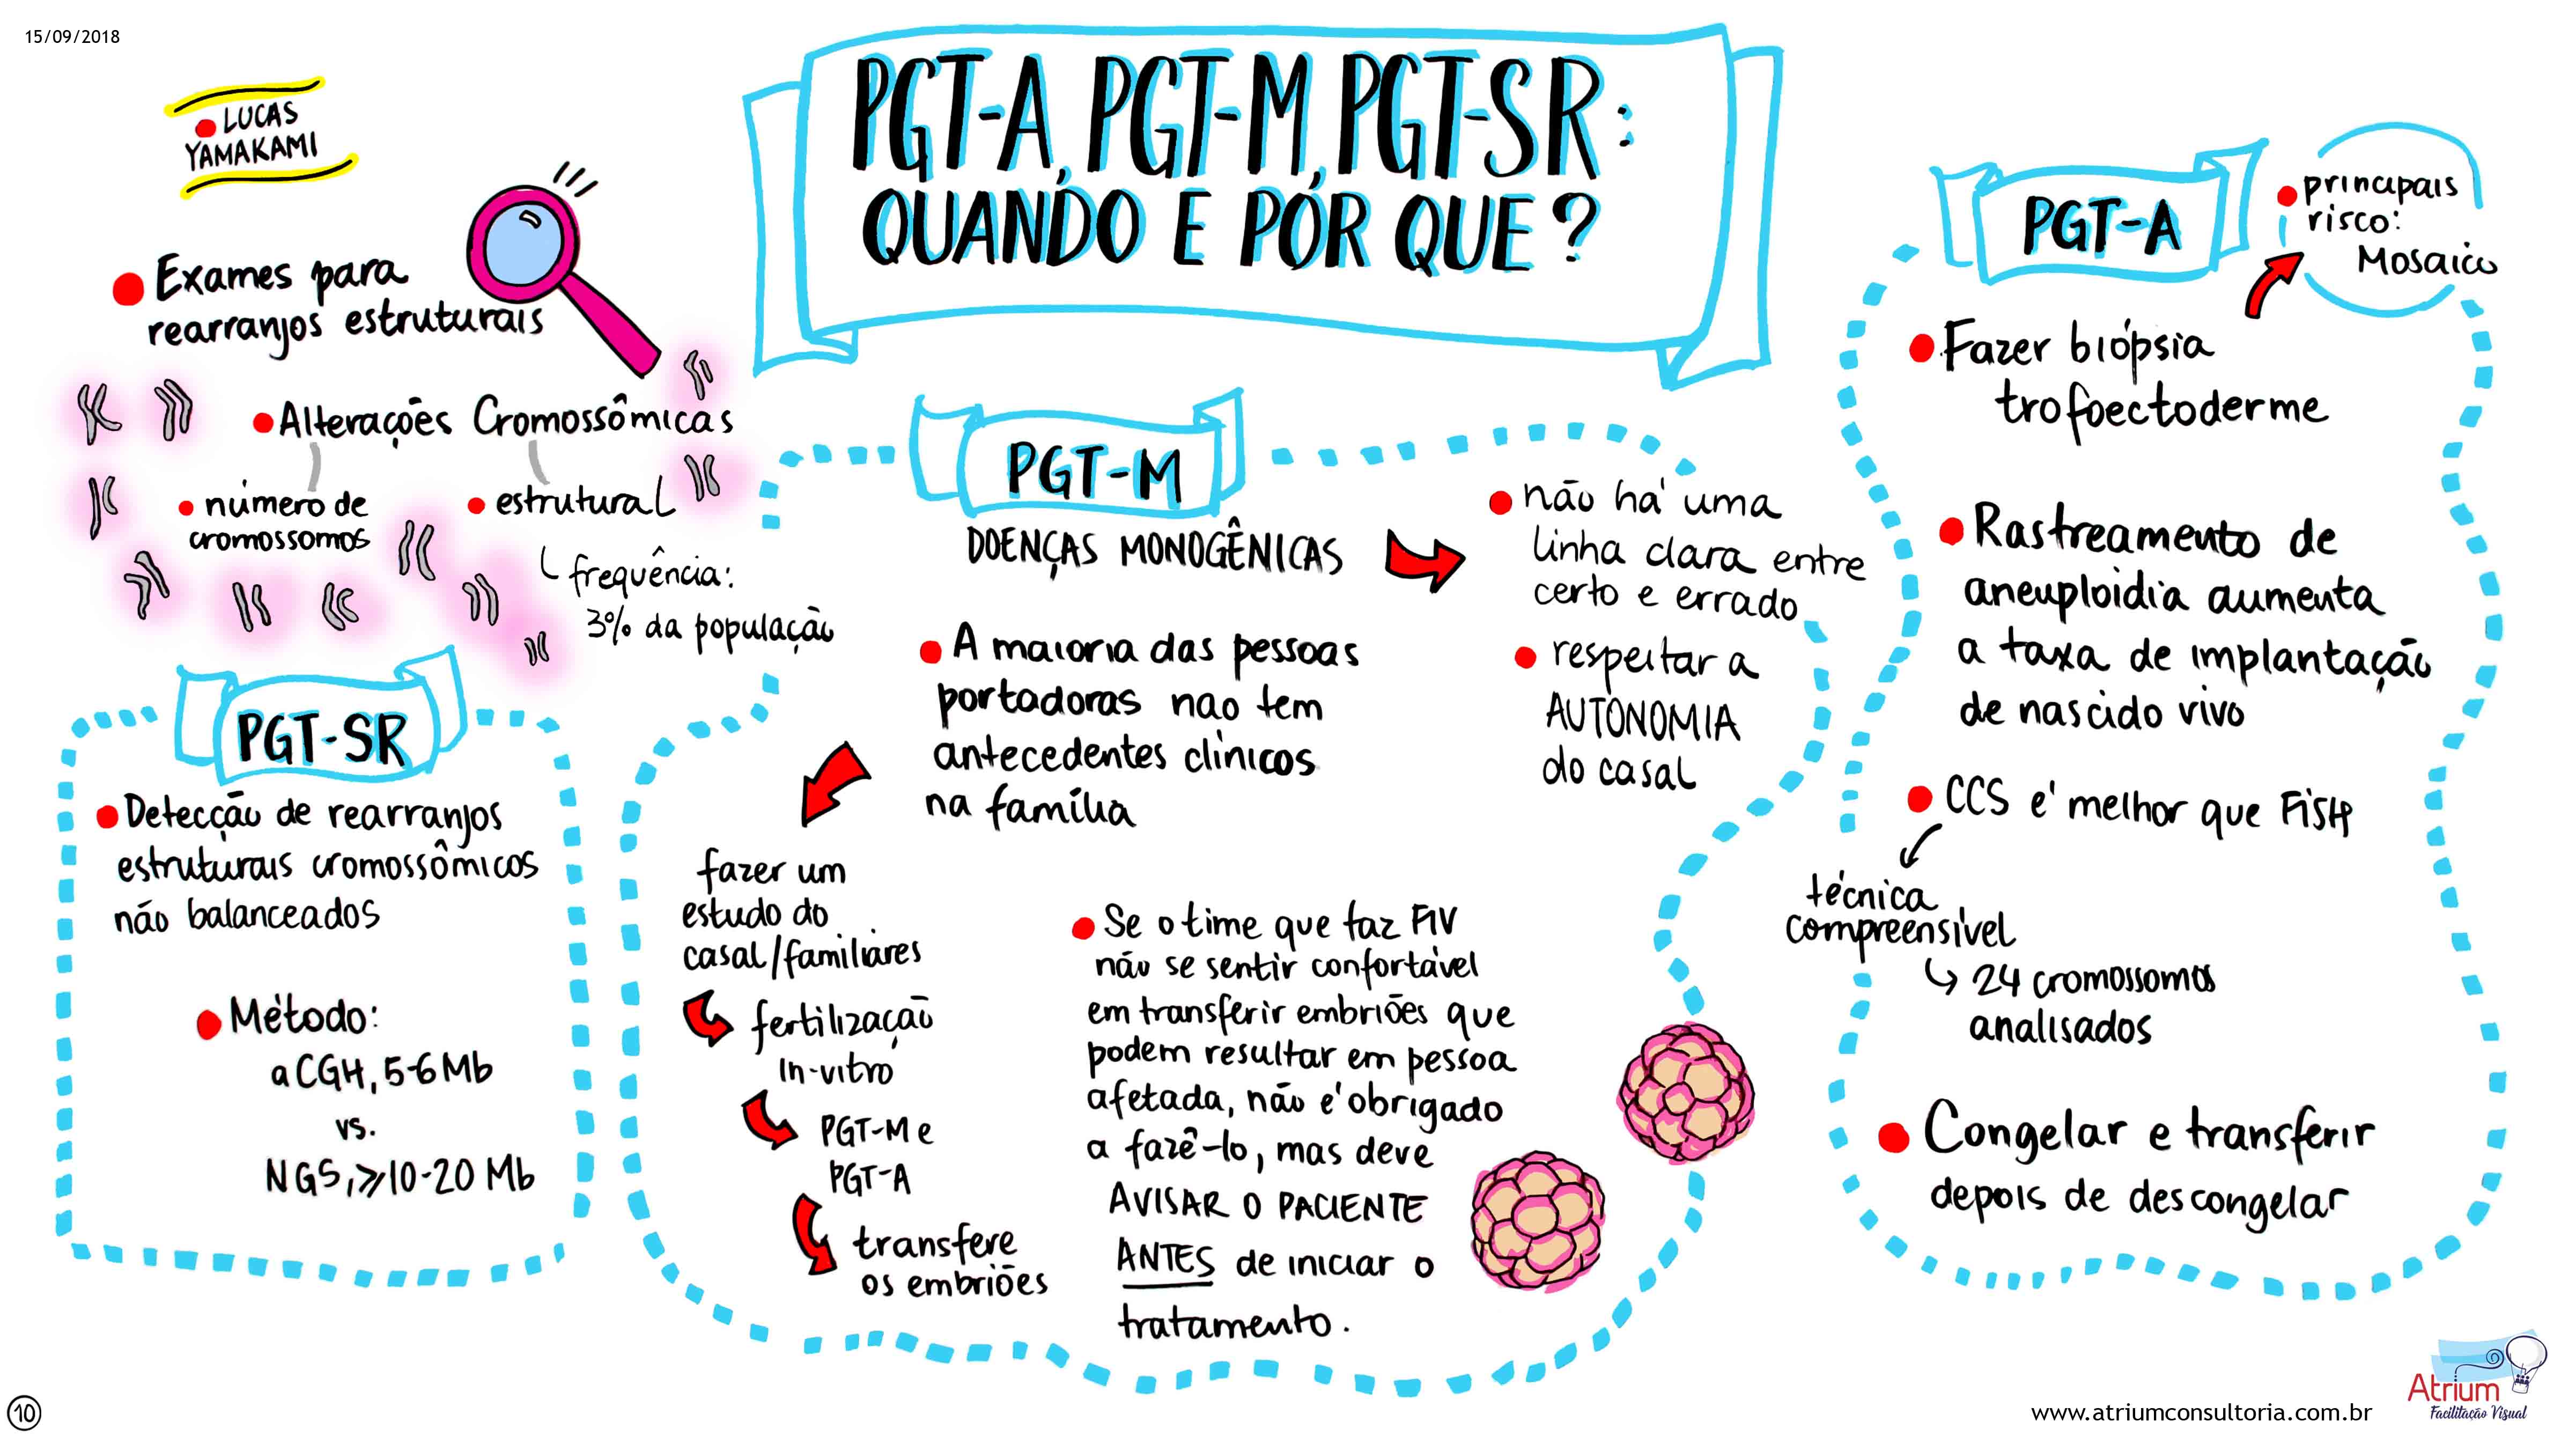 15/09/2018
LUCAS
YAMAKAMI
PGT-A, PGT-M, PGT-SR:
QUANDO E POR QUE?
Exames para
rearranjos estruturais
Alterações Cromossômicas
número de
cromossomos
estrutural
frequência:
3% da população
PGT-SR
Detecção de rearranjos
estruturais cromossômicos
não balanceados
Método:
aCGH, 5-6 Mb
vs.
NGS, ≥10-20 Mb
PGT-M
DOENÇAS MONOGÊNICAS
não há uma
linha clara entre
certo e errado
respeitar a
AUTONOMIA
do casal
A maioria das pessoas
portadoras nao tem
antecedentes clínicos
na família
fazer um
estudo do
casal/familiares
fertilização
In-vitro
PGT-M e
PGT-A
transfere
os embriões
Se o time que faz FIV
não se sentir confortável
em transferir embriões que
podem resultar em pessoa
afetada, não é obrigado
a fazê-lo, mas deve
AVISAR O PACIENTE
ANTES de iniciar o
tratamento.
PGT-A
principais
risco:
Mosaico
Fazer biópsia
trofoectoderme
Rastreamento de
aneuploidia aumenta
a taxa de implantação
de nascido vivo
CCS é melhor que FiSH
técnica
compreensível
24 cromossomos
analisados
Congelar e transferir
depois de descongelar
10
www.atriumconsultoria.com.br
Atrium
Facilitação Visual